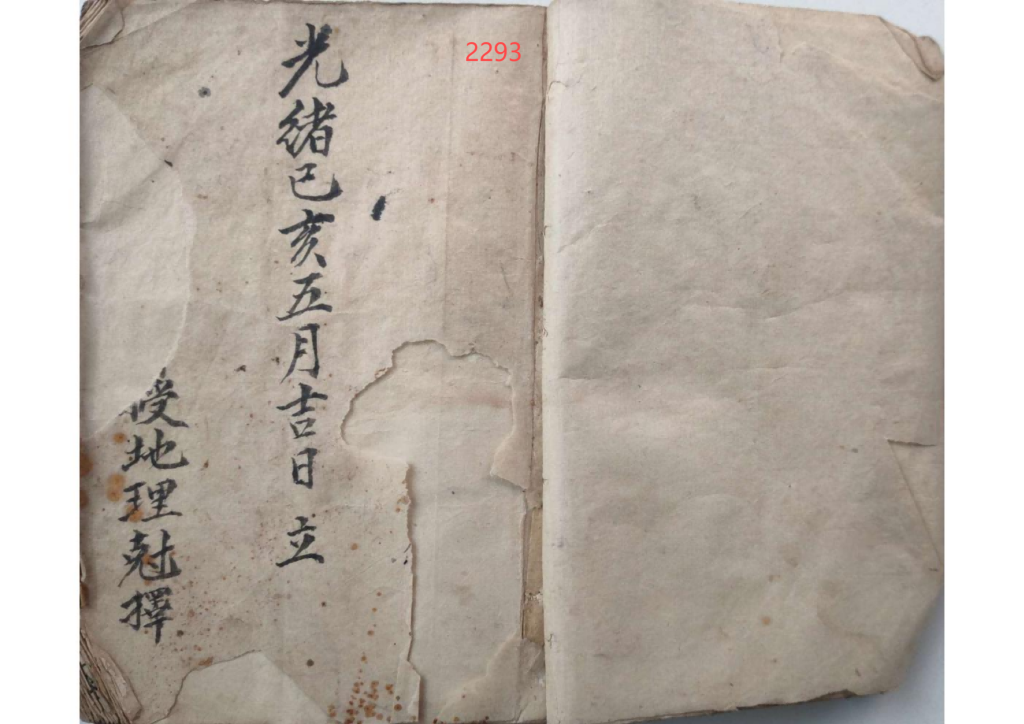 2293
光緒己亥五月吉日 立
授地理尅擇